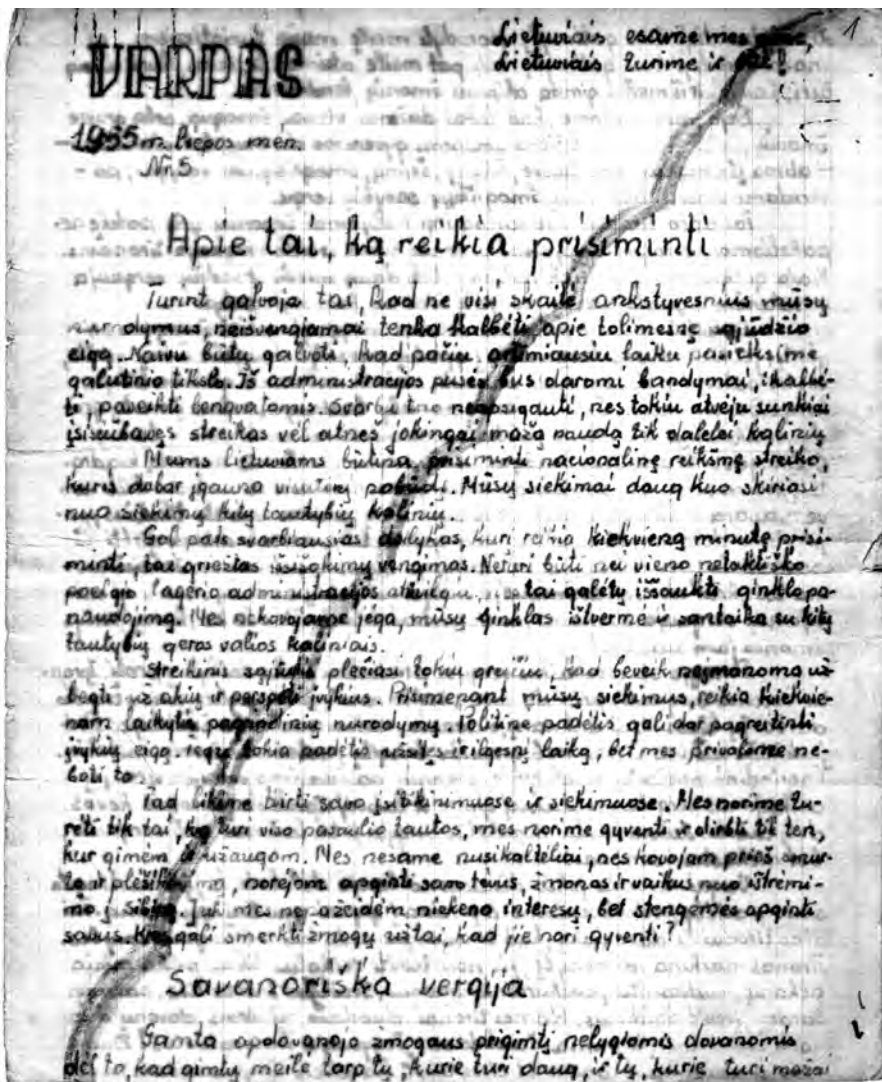 1
Lietuviais esame mes
Lietuviais turime ir būt!
VARPAS
1955 m. liepos mėn.
Nr. 5
Apie tai, ką reikia prisiminti
Turint galvoja tai, kad ne visi skaitė ankstyvesnius mūsų
nurodymus, neišvengiamai tenka kalbėti apie tolimesnę sąjūdžio
eigą. Naivu būtų galvoti, kad pačiu artimiausiu laiku pasieksime
galutinio tikslo. Iš administracijos pusės bus daromi bandymai, įkalbė-
ti, paveikti lengvatomis. Svarbu tuo neapsigauti, nes tokiu atveju sunkiai
įsisiūbavęs streikas vėl atneš juokingai mažą naudą tik dalelei kalinių
Mums lietuviams būtina prisiminti nacionalinę reikšmę streiko,
kuris dabar įgauna visuotinį pobūdį. Mūsų siekimai daug kuo skiriasi
nuo siekimų kitų tautybių kalinių.
Gal pats svarbiausias dalykas, kurį reikia kiekvieną minutę prisi-
minti, tai griežtas išsišokimų vengimas. Neturi būti nei vieno netaktiško
poelgio lagerio administracijos atžvilgiu, nes tai galėtų iššaukti ginklo pa-
naudojimą. Mes nekovojame jėga, mūsų ginklas ištvermė ir santaika su kitų
tautybių geros valios kaliniais.
Streikinis sąjūdis plečiasi tokiu greičiu, kad beveik neįmanoma už-
bėgti už akių ir perspėti įvykius. Prisimenant mūsų siekimus, reikia kiekvie-
nam laikytis pagrindinių nurodymų. Politinė padėtis gali dar pagreitinti
įvykių eigą. tokia padėtis užsitęs ir ilgesnį laiką, bet mes privalome ne-
boti to
Tad likime tvirti savo įsitikinimuose ir siekimuose. Mes norime tu-
rėti tik tai, ką turi viso pasaulio tautos, mes norime gyventi ir dirbti tik ten,
kur gimėm ir užaugom. Mes nesame nusikaltėliai, nes kovojam prieš smur-
tą ir plėšikavimą, norėjom apginti savo tėvus, žmonas ir vaikus nuo ištrėmi-
mo į Sibirą. Juk mes nepažeidėm niekeno interesų, bet stengėmės apginti
savus. Kas gali smerkti žmogų už tai, kad jie nori gyventi?
Savanoriška vergija
Gamta apdovanojo žmogaus prigimtį nelygiomis dovanomis
dėl to, kad gimtų meilė tarp tų, kurie turi daug, ir tų, kurie turi mažai